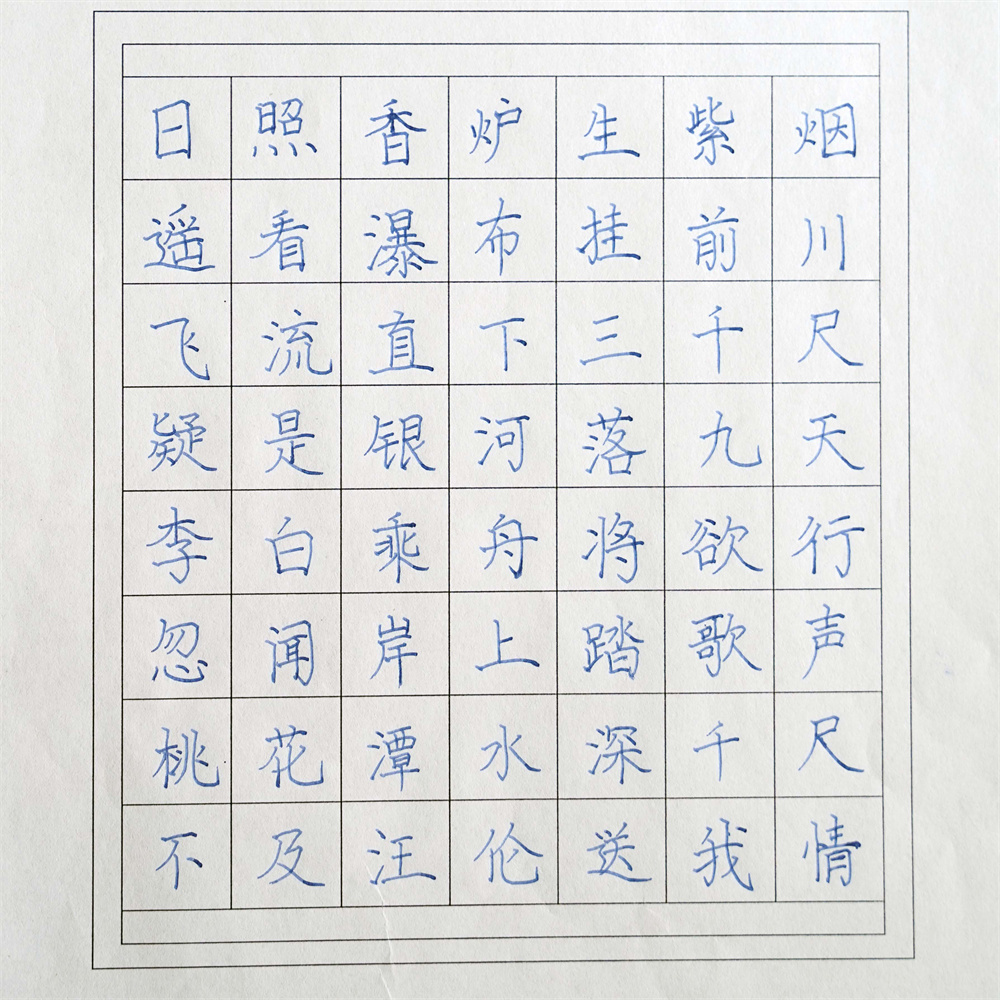 日照香炉生紫烟
遥看瀑布挂前川
飞流直下三千尺
疑是银河落九天
李白乘舟将欲行
忽闻岸上踏歌声
桃花潭水深千尺
不及汪伦送我情